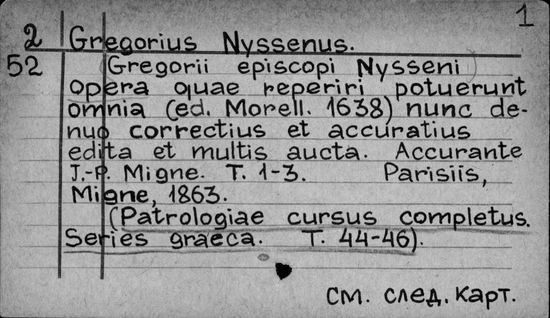 1
2 Gregorius Nyssenus.
52 (Gregorii episcopi Nysseni)
opera quae reperiri potuerunt
omnia (ed. Morell. 1638) nunc de-
nuo correctius et accuratius
edita et multis aucta. Accurante
J.-P. Migne. T. 1-3. Parisiis,
Migne, 1863.
(Patrologiae cursus completus.
Series graeca. T. 44-46).
См. след. карт.